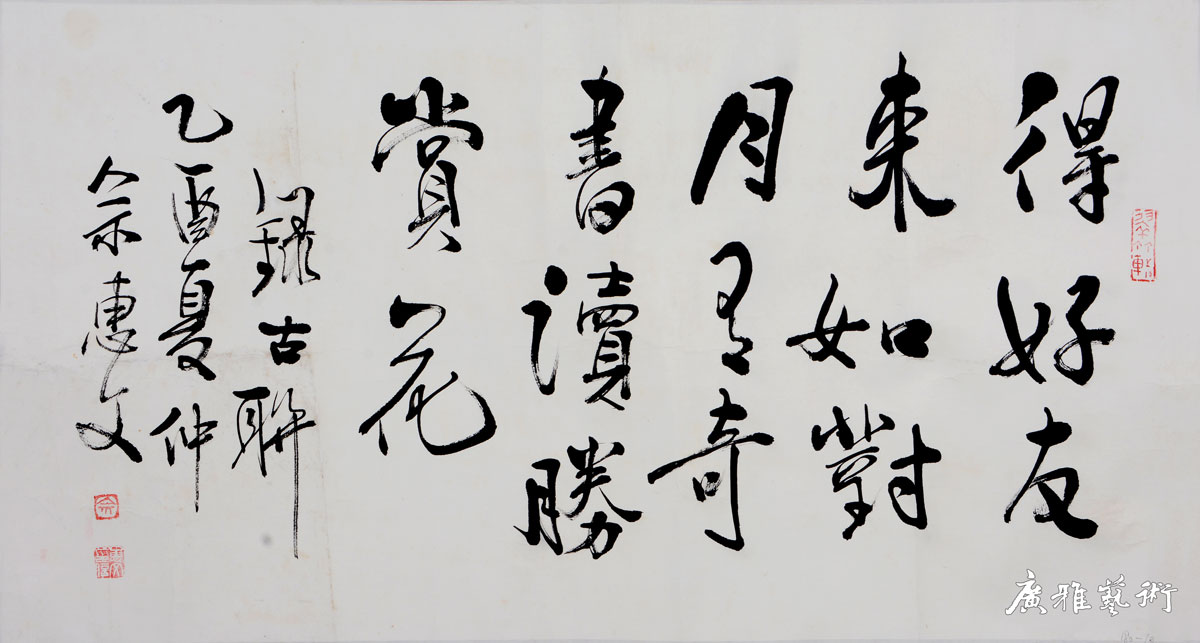 得好友
来如對
月有奇
書讀勝
賞花
錄古聯
乙酉夏仲
佘惠文
廣雅藝術